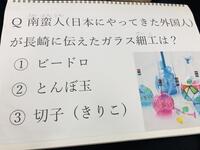 Q 南蛮人(日本にやってきた外国人)
が長崎に伝えたガラス細工は?
① ビードロ
② とんぼ玉
③ 切子(きりこ)